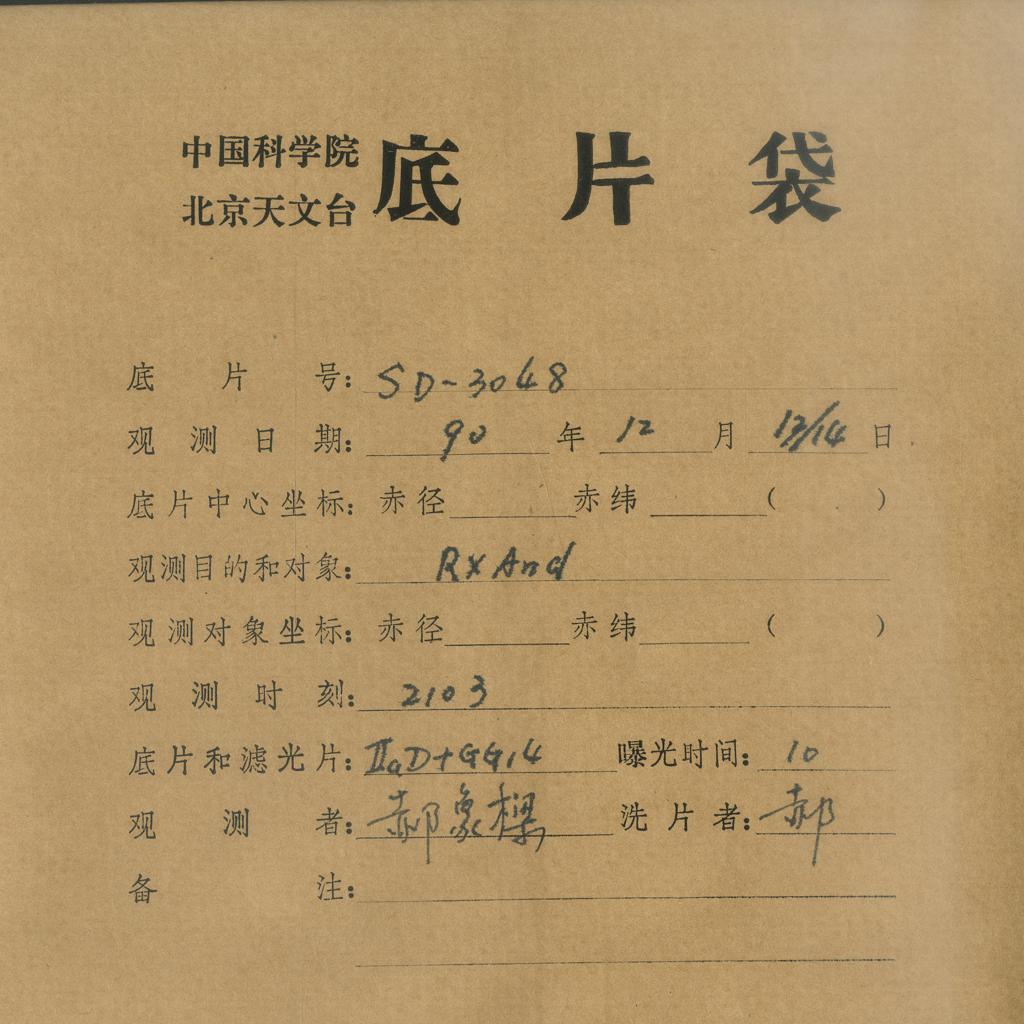 中国科学院
北京天文台
底片袋
底片号：SD-3048
观测日期：90年12月13/14日
底片中心坐标：赤径 赤纬 （ ）
观测目的和对象：RX And
观测对象坐标：赤径 赤纬 （ ）
观测时刻：2103
底片和滤光片：ⅡaD+GG14 曝光时间：10
观测者：郝象樑 洗片者：郝
备注：